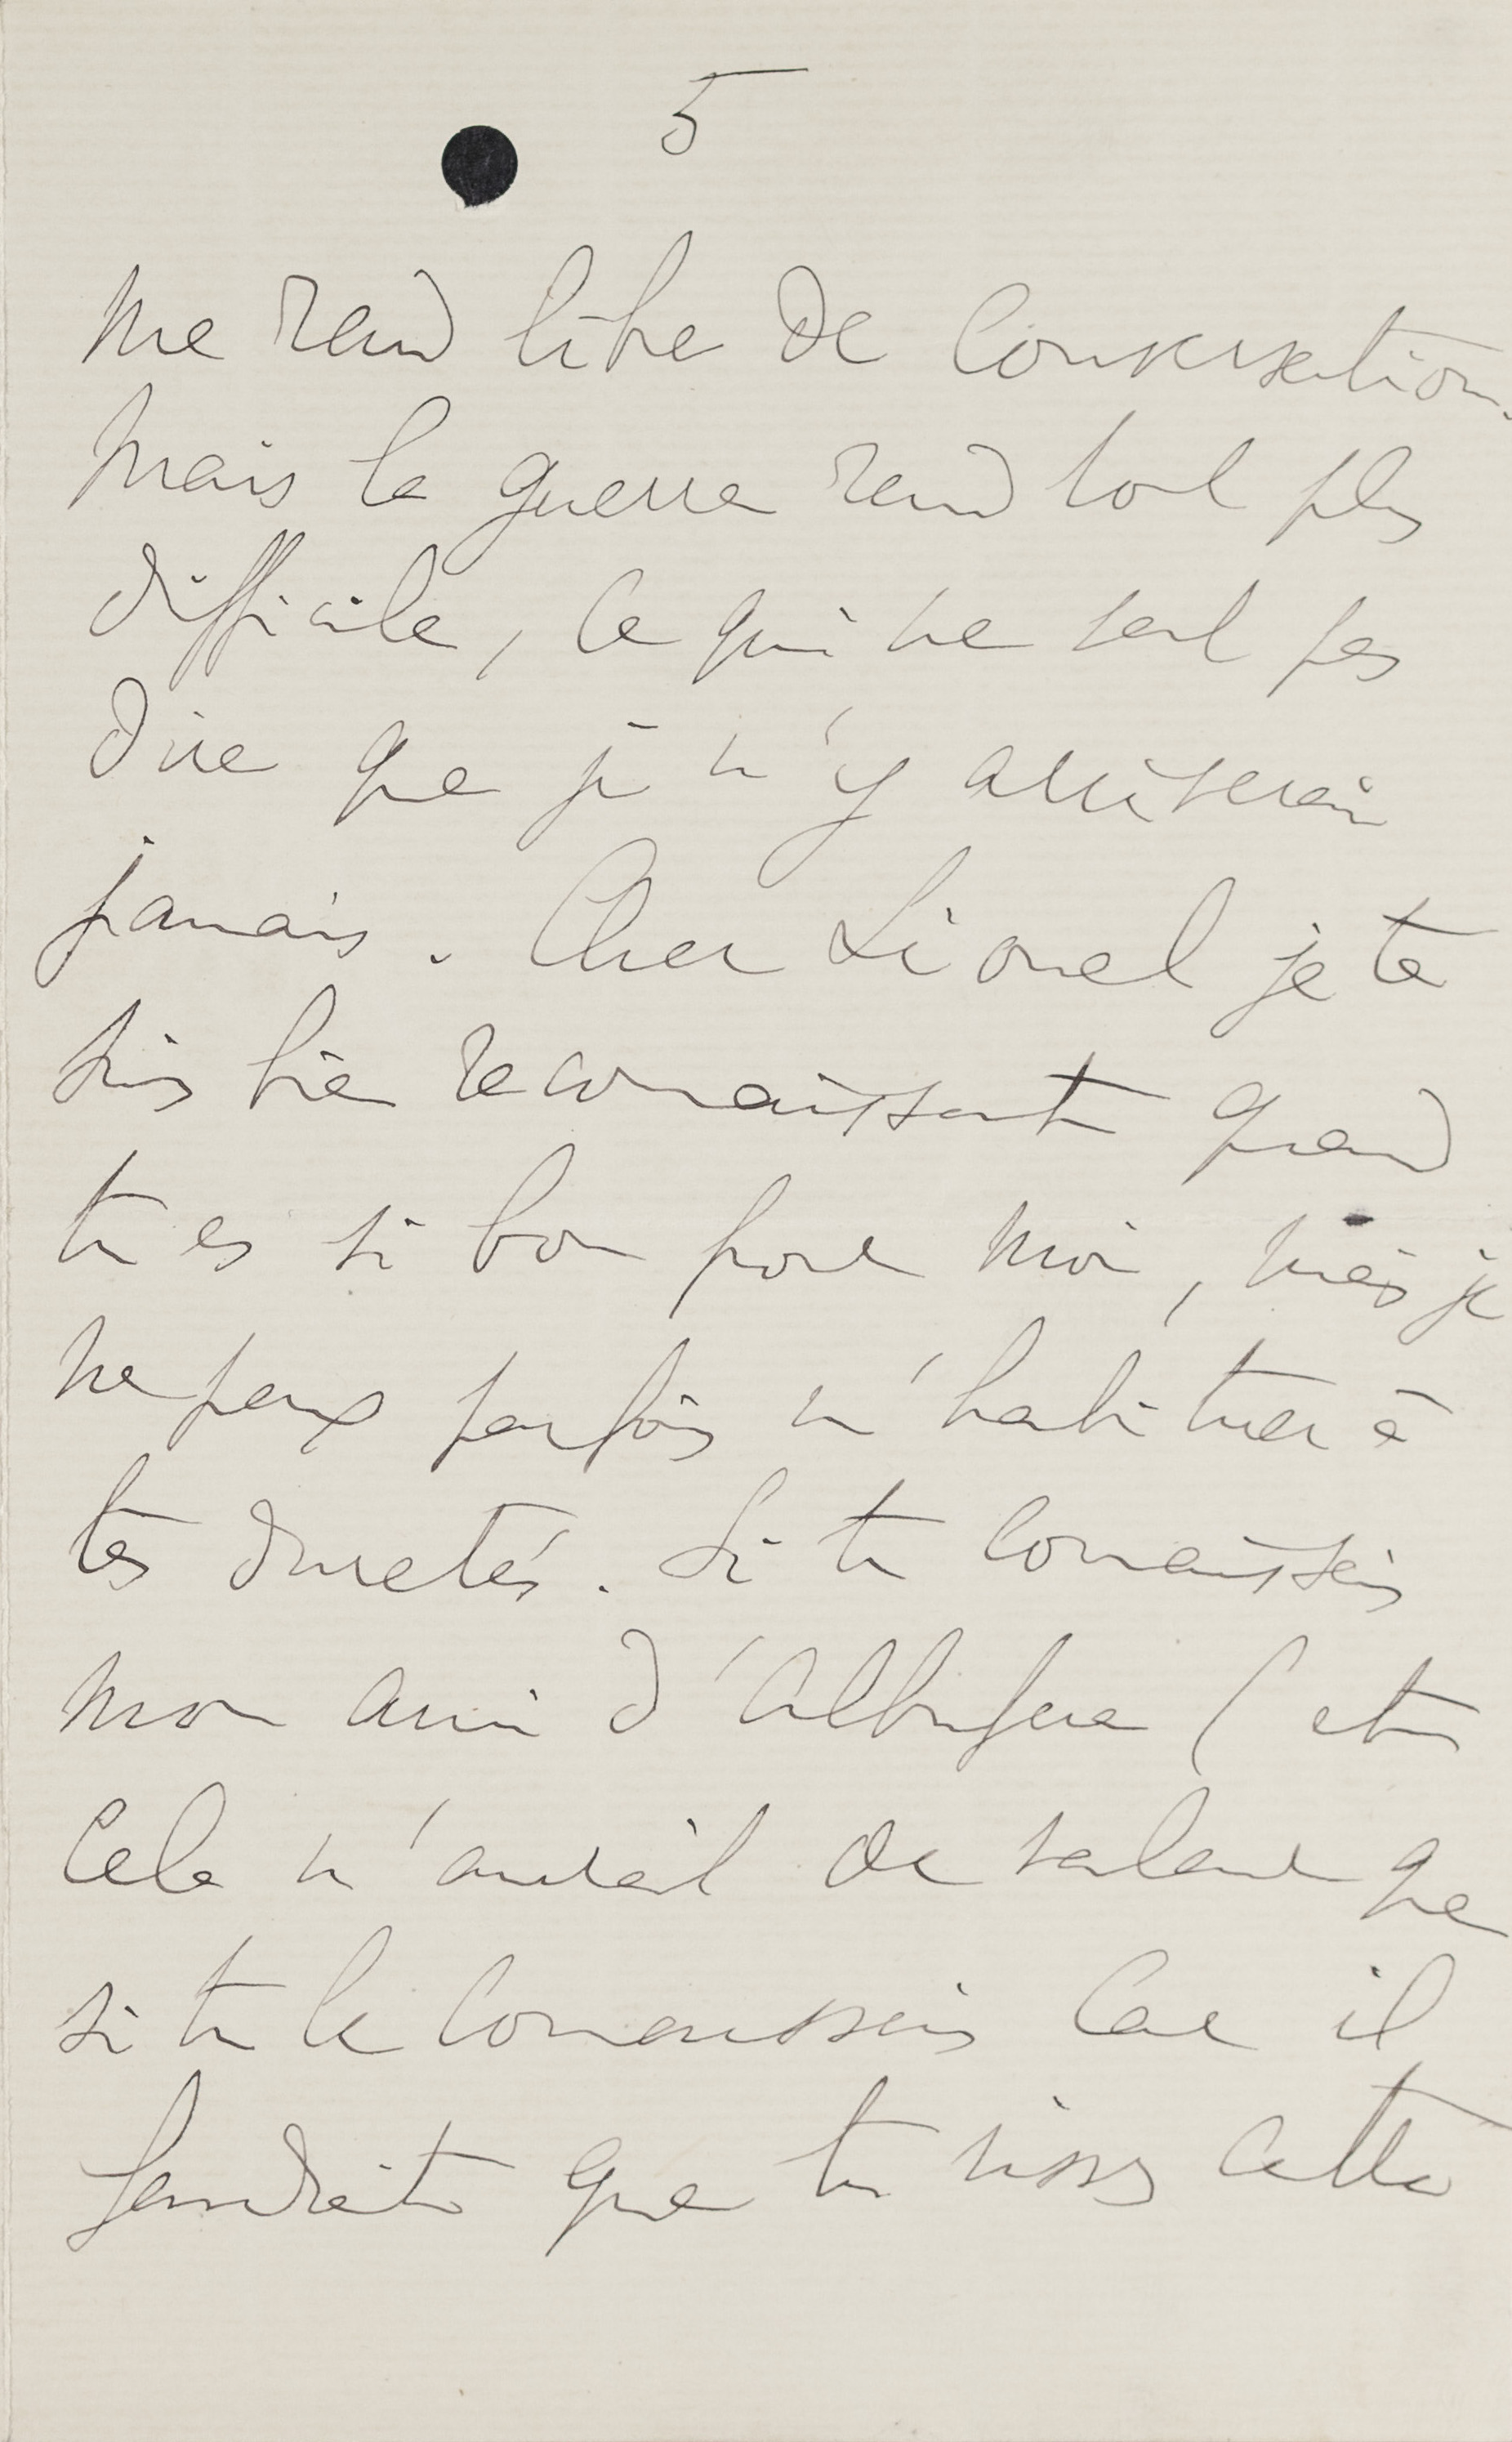 5
me rend libre de conversation.
Mais la guerre rend tout plus
difficile, ce qui ne veut pas
dire que je n'y arriverai
jamais. Cher Lionel je te
suis bien reconnaissant quand
tu es si bon pour moi, mais je
ne peux parfois m'habituer à
tes duretés. Si tu connaissais
mon ami d'Albufera (et
cela n'aurait de valeur que
si tu le connaissais car il
faudrait que tu visses cette